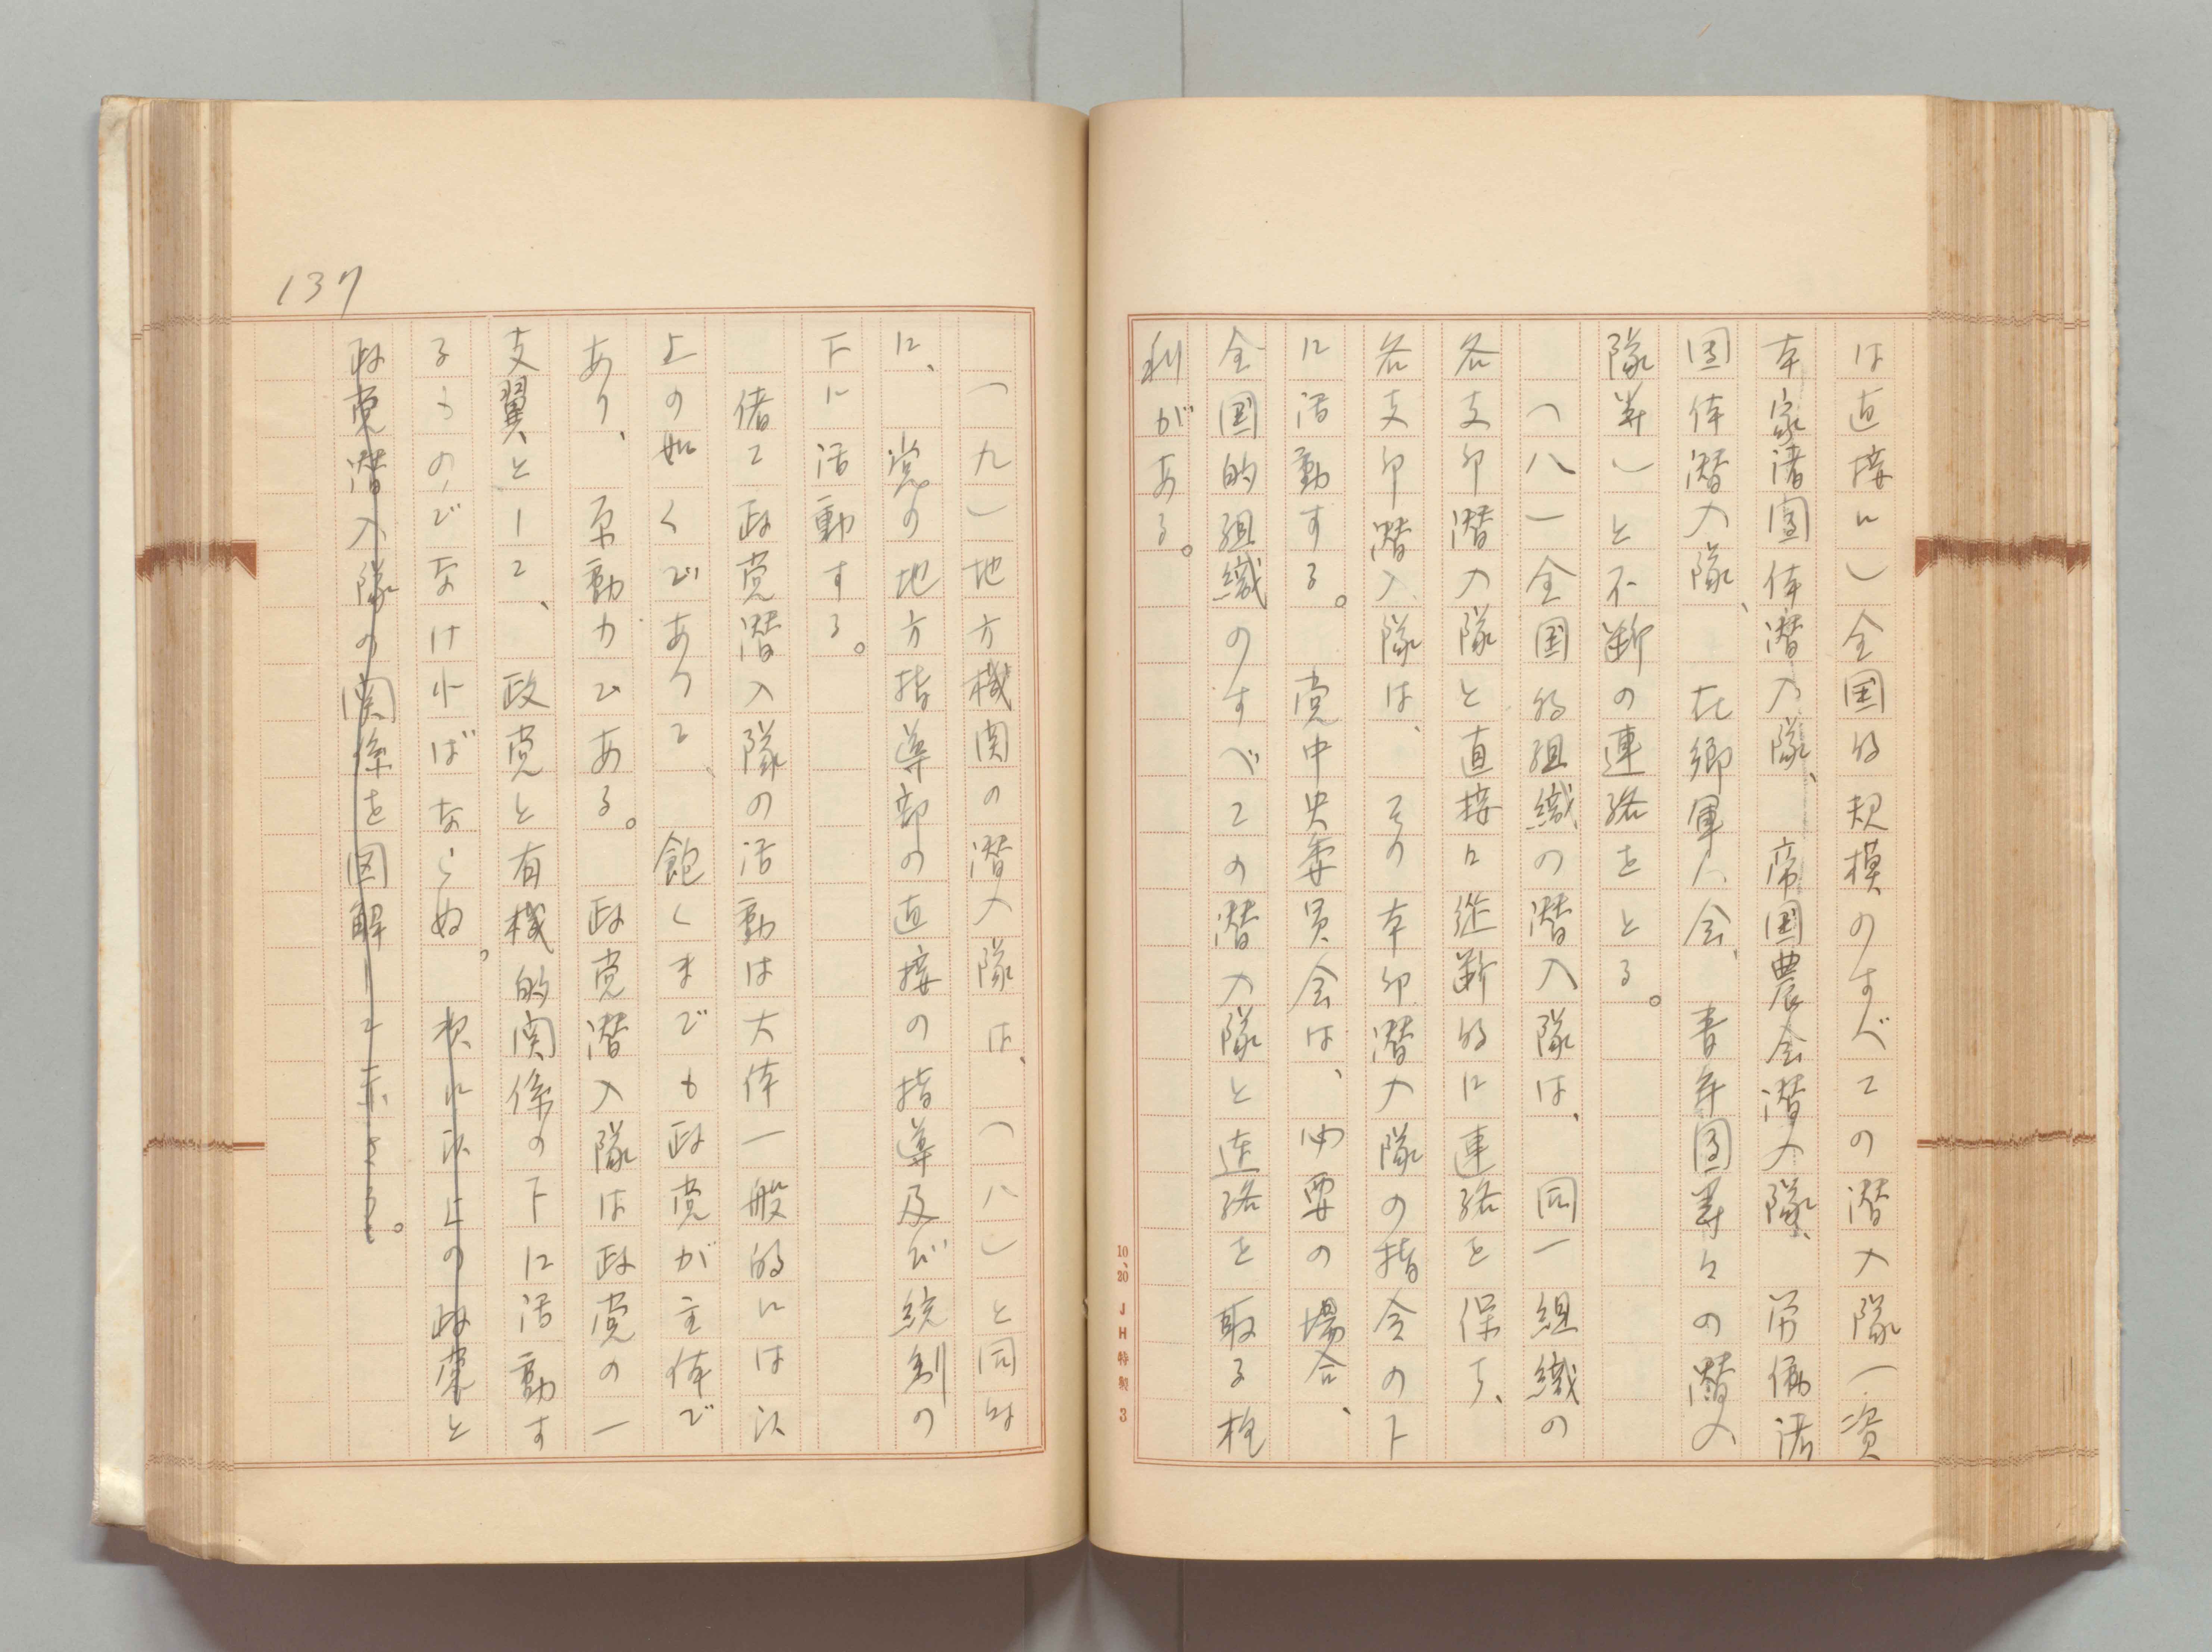 は直接に）全国的規模のすべての潜入隊（資
本家諸団体潜入隊、帝国農会潜入隊、労働諸
団体潜入隊、在郷軍人会、青年団等々の潜入
隊等）と不断の連絡をとる。
（八）全国的組織の潜入隊は、同一組織の
各支部潜入隊と直接に縦断的に連絡を保ち、
各支部潜入隊は、その本部潜入隊の指令の下
に活動する。党中央委員会は、必要の場合、
全国的組織のすべての潜入隊と連絡を取る权
利がある。
10、20 JH特製 3
137
（九）地方機関の潜入隊は、（八）と同様
に、党の地方指導部の直接の指導及び統制の
下に活動する。
偖て政党潜入隊の活動は大体一般的には以
上の如くであつて、飽くまでも政党が主体で
あり、原動力である。政党潜入隊は政党の一
支翼として、政党と有機的関係の下に活動す
るものでなければならぬ。次に以上の政党と
政党潜入隊の関係を図解して示さう。